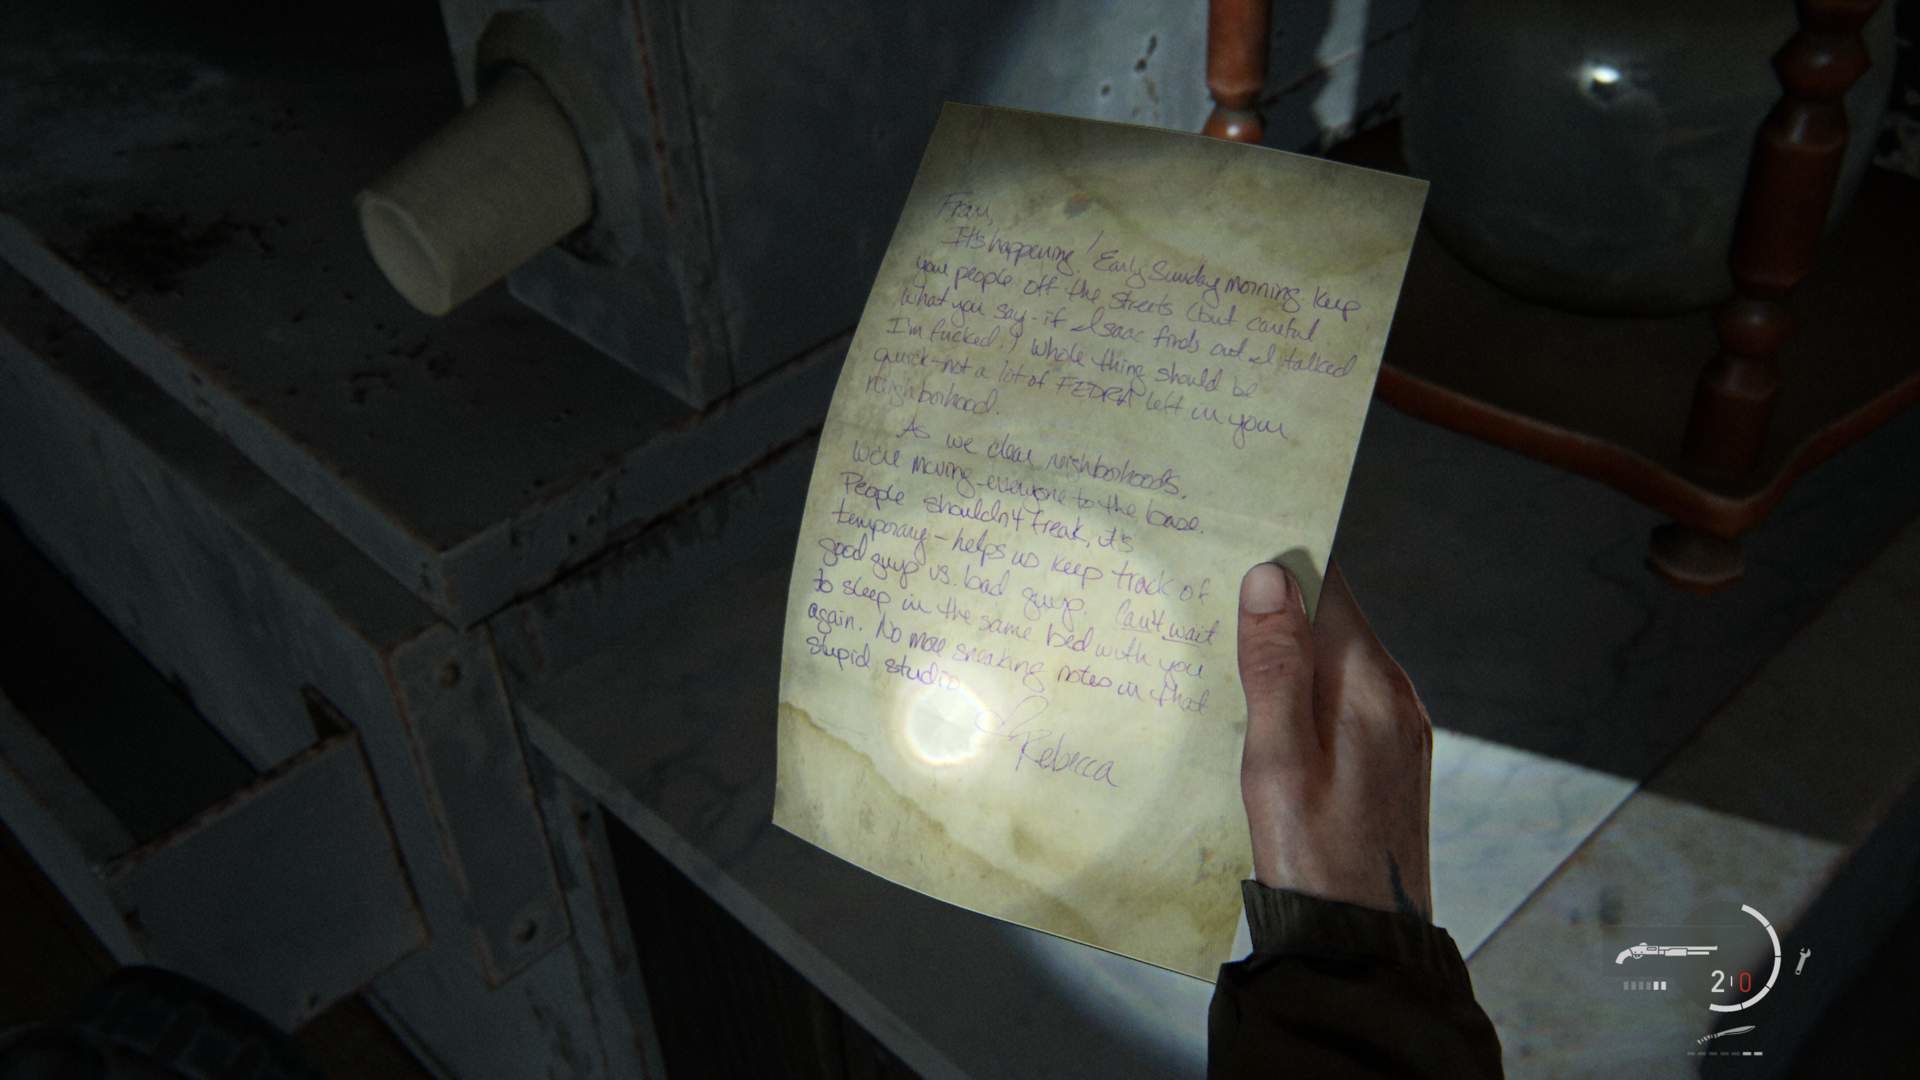 Fran,
It's happening! Early Sunday morning keep
your people off the streets (but careful
what you say - if Isaac finds out I talked
I'm fucked.) Whole thing should be
quick - not a lot of FEDRA left in your
neighborhood.
As we clear neighborhoods,
we're moving everyone to the base.
People shouldn't freak, it's
temporary - helps us keep track of
good guys vs. bad guys. Can't wait
to sleep in the same bed with you
again. No more sneaking notes in that
stupid studio
Rebecca
2 0